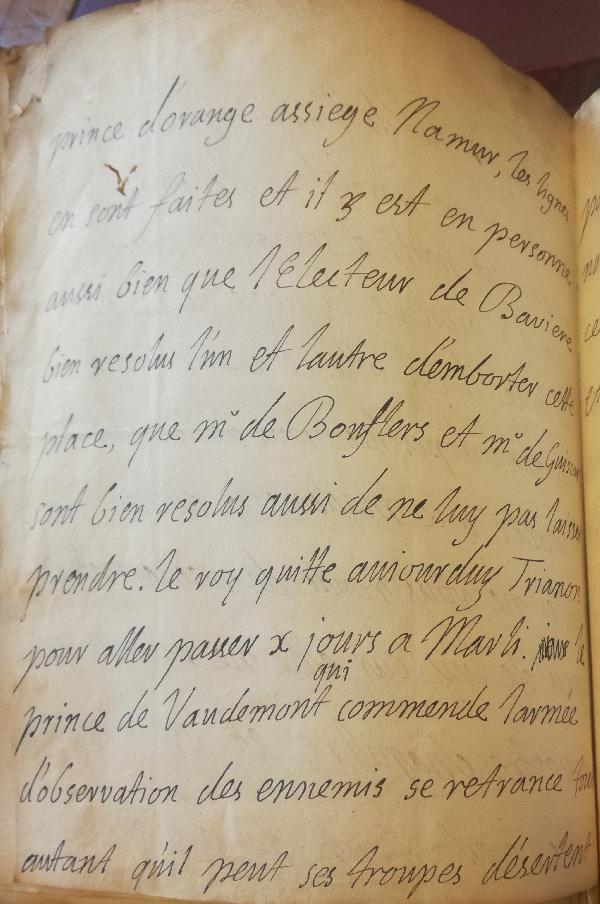 prince d'orange assiege Namur, les lignes
en sont faites et il y est en personne
aussi bien que l'Electeur de Baviere
bien resolus l'un et lautre d'emborter cette
place, que mr de Bouflers et mr de
sont bien resolus aussi de ne luy pas
prendre. le roy quitte auiourduy Trianon
pour aller passer x jours a Marli. le
prince de Vaudemont qui commende larmée
d'observation des ennemis se retrance
autant qu'il peut ses troupes désertent